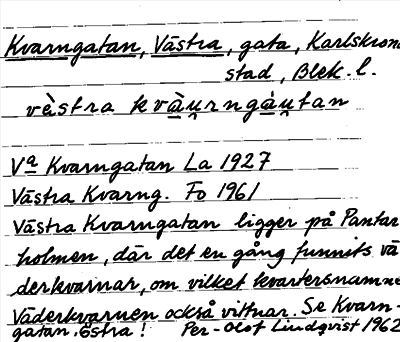 Kvarngatan, Västra, gata, Karlskrona
stad, Blek. l.
vèstra kvàu̯rngàu̯tan
Va Kvarngatan La 1927
Västra Kvarng. Fo 1961
Västra Kvarngatan ligger på Pantar
holmen, där det en gång funnits vä
derkvarnar, om vilket kvartersnamne
Väderkvarnen också vittnar. Se Kvarn-
gatan, Östra! Per-Olof Lindqvist 1962